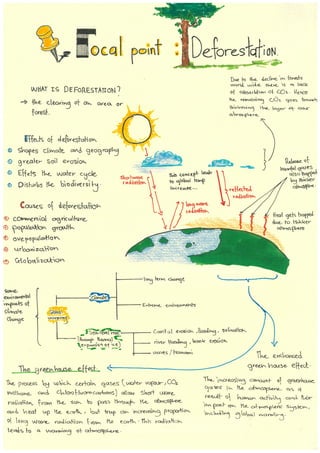 Focal point : Deforestation
WHAT IS DEFORESTATION?
→ the clearing of an area or
forest.
Due to the decline in forests
world wide there is a lack
of absorbtion of CO₂. Hence
the remaining CO₂ goes towards
thickening the layer of our
atmosphere.
Effects of deforestation
Shapes climate and geography
greater soil erosion
Effects the water cycle
Disturbs the biodiversity
Causes of deforestation
commercial agriculture
population growth
ovepopulation
urbanization
Globalization
Short wave
radiation
This concept leads
to global temp
increase
long wave
radiation
reflected
radiation
Release of
harmful gases
also trapped
by thicker
atmosphere
Heat gets trapped
due to thicker
atmosphere
Some
enviromental
impacts of
Climate
Change
Climate
long term change
Extreme enviroments
Global
warming
Sea level rise
through thermal
expansion of ice
Coastal erosion, flooding, salination
river flooding, bank erosion
waves / tsunami
The greenhouse effect
The process by which certain gases (water vapour, CO₂
methane and chlorofluorocarbons) allow short wave
radiation from the sun to pass through the atmosphere
and heat up the earth, but trap an increasing proportion
of long wave radiation from the earth. This radiation
leads to a warming of atmosphere.
The enhanced
green house effect
The increasing amount of greenhouse
gases in the atmosphere as a
result of human activity and their
impact on the atmospheric system,
including global warming.